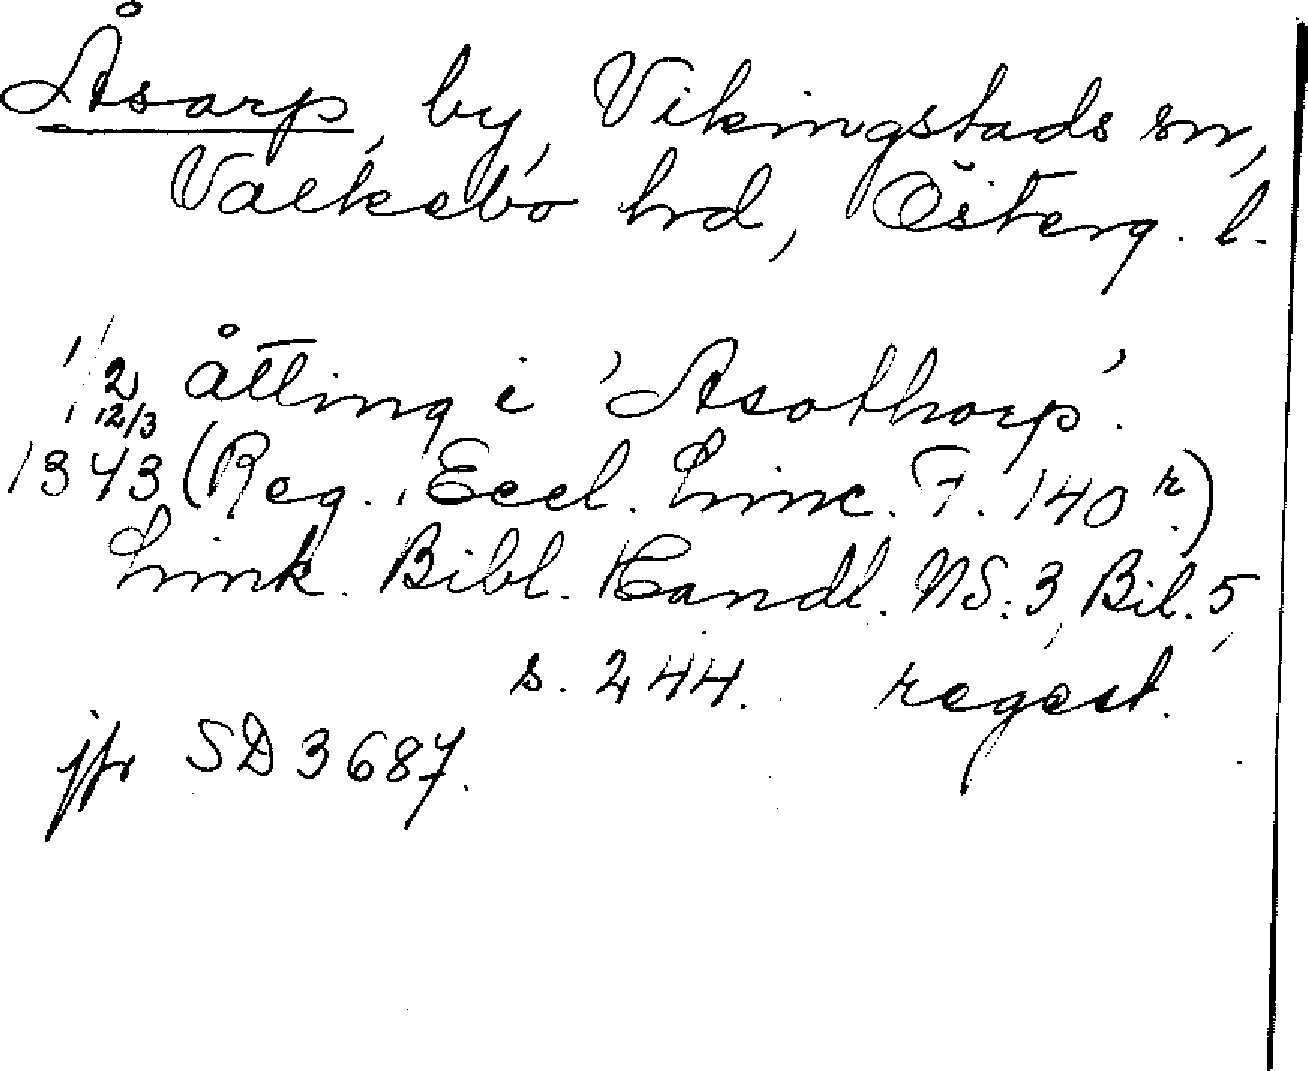 Åsarp, by, Vikingstads sn,
Valkebo hrd, Österg. l.
1/2 åtting i 'Asathorp'.
12/3
1343 (Reg. Eccl. Linc. F. 140 r.)
Link. Bibl. Handl. NS. 3, Bil. 5,
s. 244. regest.
jfr SD 3687.